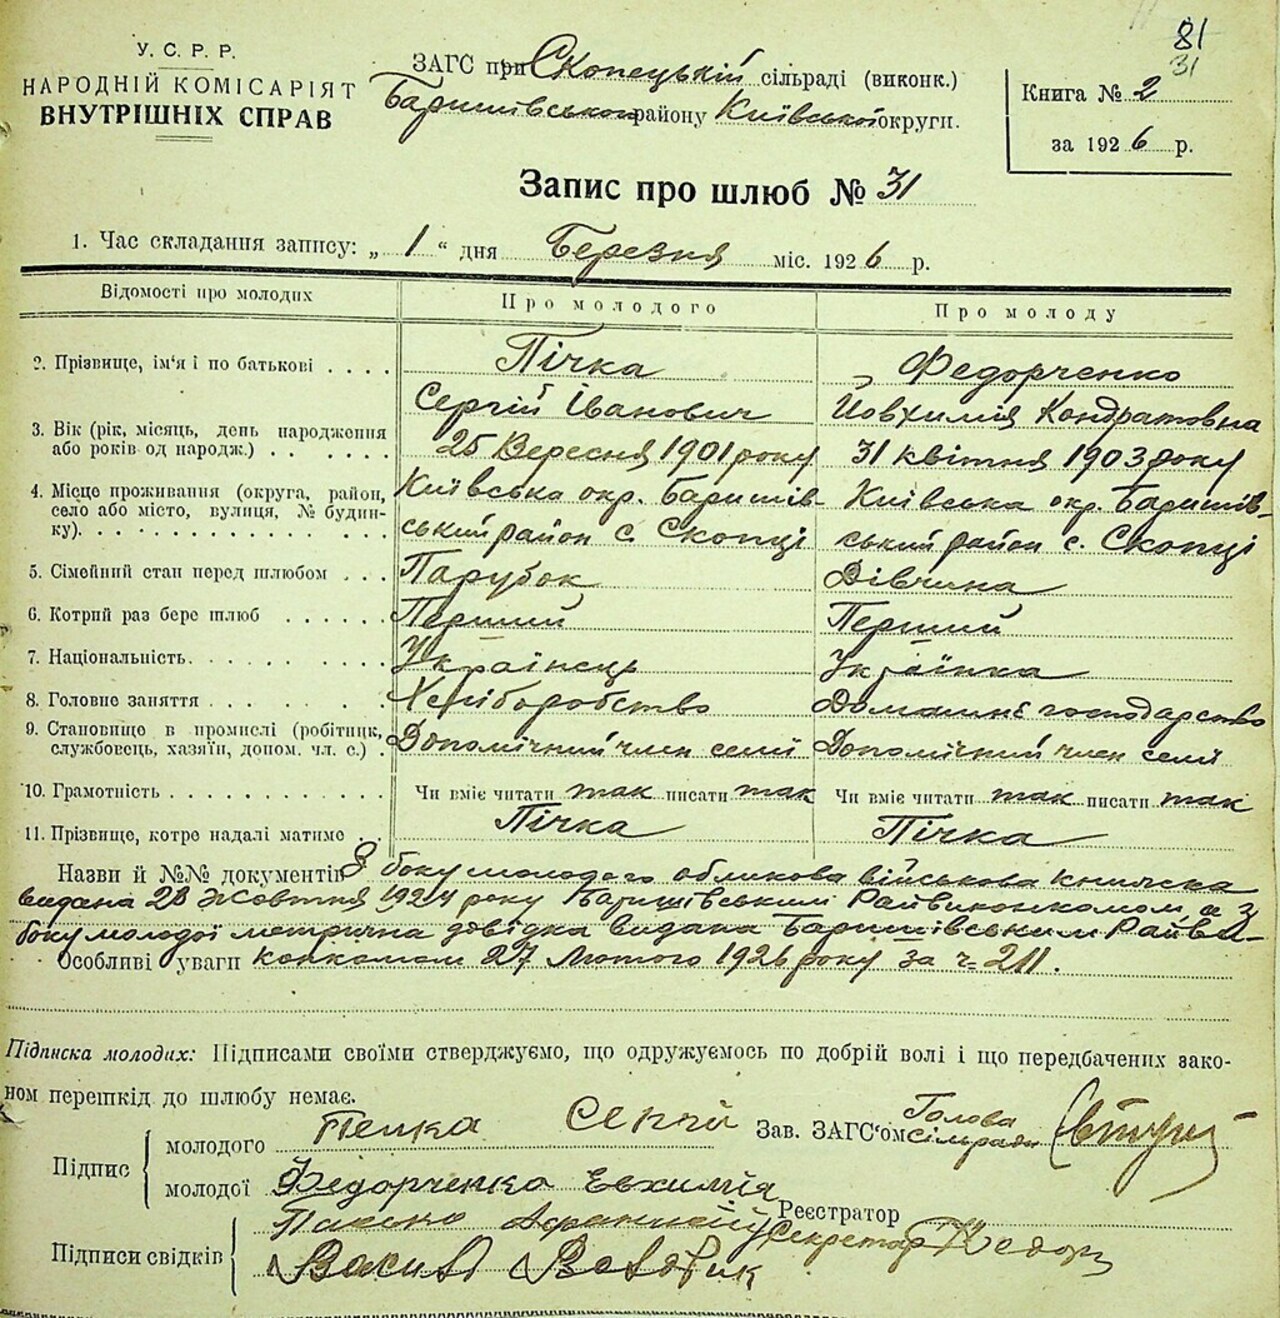 81
31
У. С. Р. Р.
НАРОДНІЙ КОМІСАРІЯТ
ВНУТРІШНІХ СПРАВ
ЗАГС при Скопецькій сільраді (виконк.)
Баришівського району Київської округи.
Книга № 2
за 1926 р.
Запис про шлюб № 31
1. Час складання запису: „ 1 “ дня Березня міс. 1926 р.
Відомості про молодих
Про молодого
Про молоду
2. Прізвище, ім'я і по батькові
Пічка
Сергій Іванович
Федорченко
Йовхимія Кондратовна
3. Вік (рік, місяць, день народження
або років од народж.)
25 Вересня 1901 року
31 квітня 1903 року
4. Місце проживання (округа, район,
село або місто, вулиця, № будин-
ку).
Київська окр. Баришів-
ський район с. Скопці
Київська окр. Баришів-
ський район с. Скопці
5. Сімейний стан перед шлюбом
Парубок
Дівчина
6. Котрий раз бере шлюб
Перший
Перший
7. Національність
Українець
Українка
8. Головне заняття
Хліборобство
Домашнє господарство
9. Становище в промислі (робітник,
службовець, хазяїн, допом. чл. с.)
Допомічний член семії
Допомічний член семії
10. Грамотність
Чи вміє читати так писати так
Чи вміє читати так писати так
11. Прізвище, котре надалі матиме
Пічка
Пічка
Назви й №№ документів З боку молодого обликова військова книжка
видана 28 Жовтня 1924 року Баришівським Райвиконкомом, а з
боку молодої метрична довідка видана Баришівським Райви-
Особливі уваги конкомом 27 Лютого 1926 року за ч. 211.
Підписка молодих: Підписами своїми стверджуємо, що одружуємось по добрій волі і що передбачених зако-
ном перешкід до шлюбу немає.
Підпис
молодого Печка Сергій
молодої Федорченко Евхимія
Зав. ЗАГС'ом Голова
Сільради
Реєстратор
Секретар
Підписи свідків